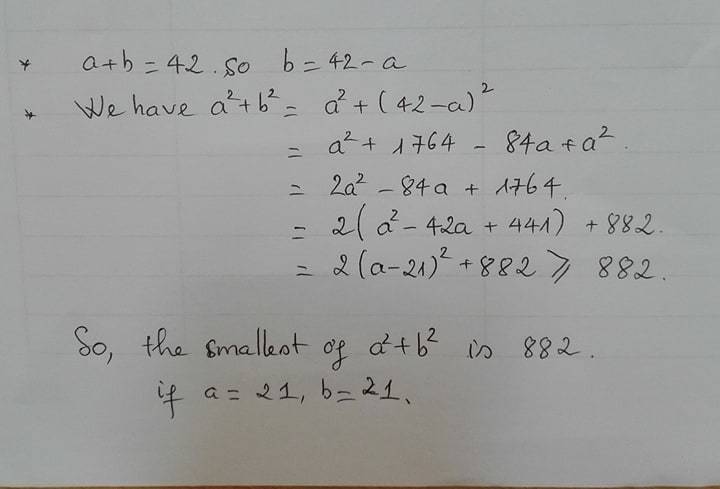 * a+b = 42. so b = 42 - a
* We have a²+b² = a² + (42-a)²
= a² + 1764 - 84a + a².
= 2a² - 84a + 1764.
= 2(a² - 42a + 441) + 882.
= 2(a-21)² + 882 ⩾ 882.
So, the smallest of a²+b² is 882.
if a = 21, b = 21.